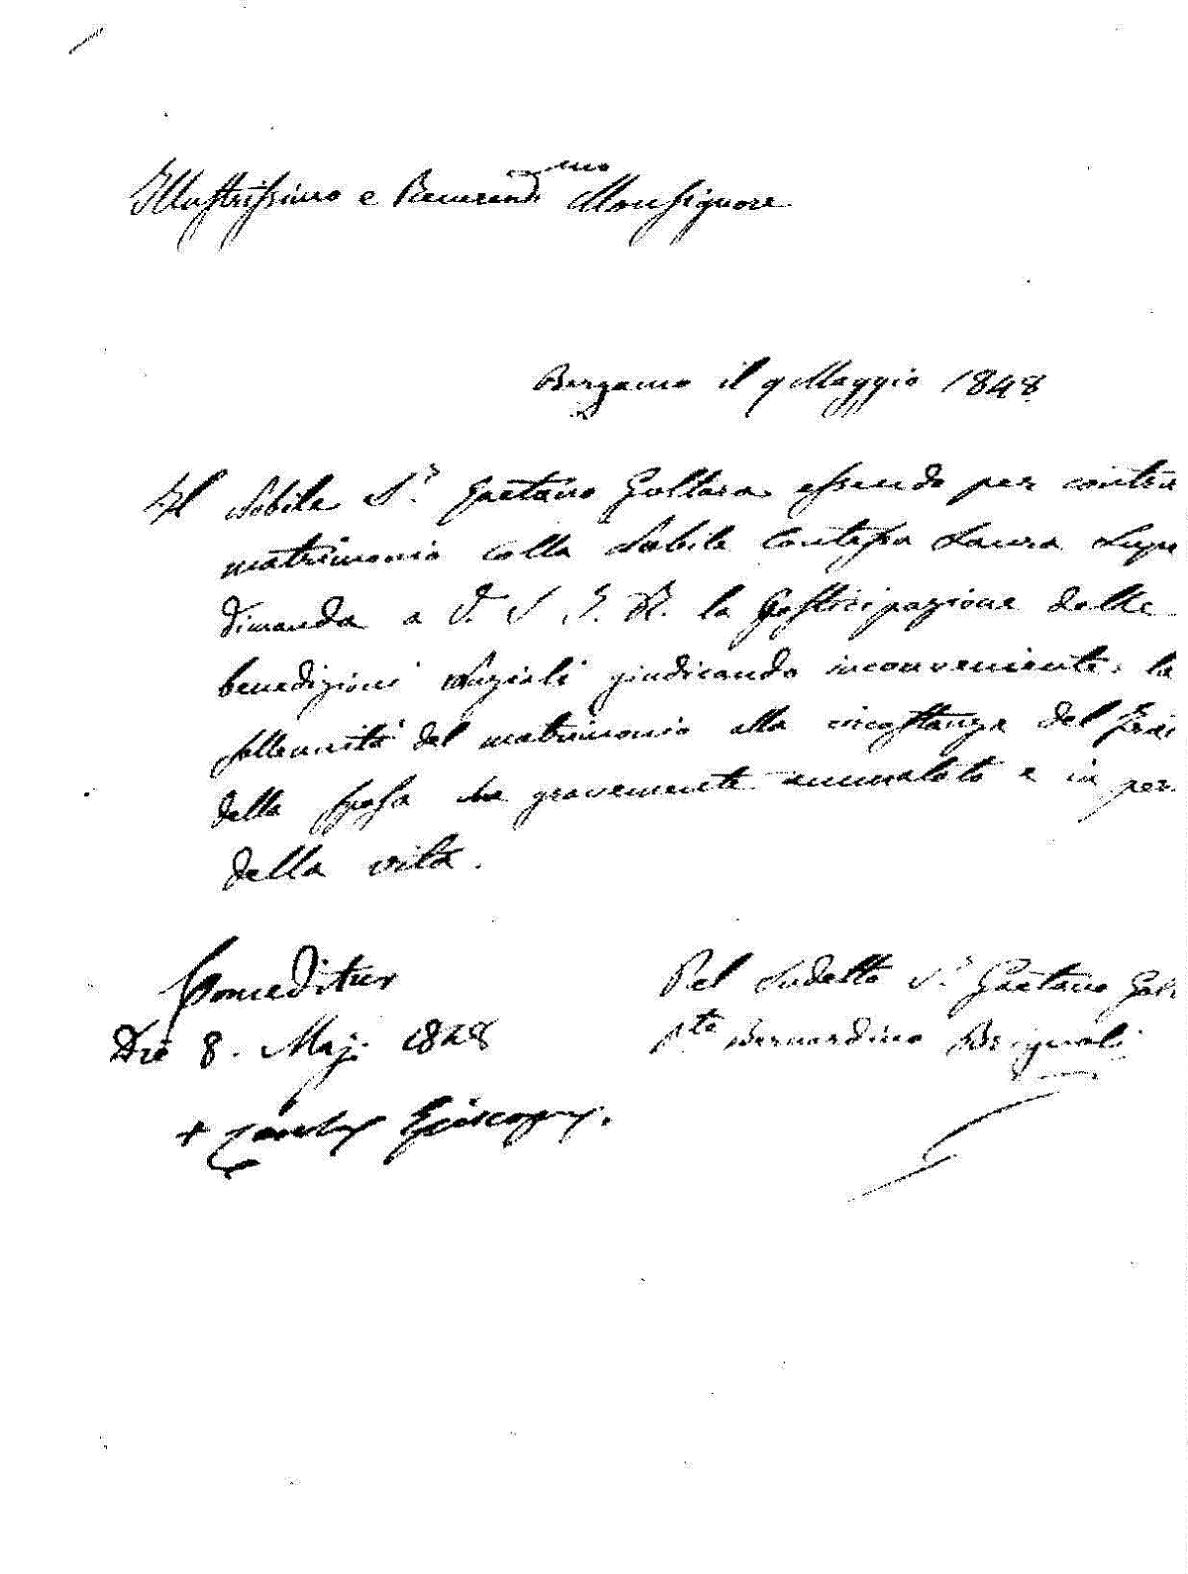 Illustrissimo e Reverend.mo Monsignore
Bergamo il 9 Maggio 1848
Il Nobile S.r Gaetano Goltara essendo per contra
matrimonio colla Nobile Contessa Laura Lupi
dimanda a V. S. I. R. la Posticipazione delle
benedizioni Nuziali giudicando inconveniente la
sollennità del matrimonio alla circostanza del
della sposa gravemente ammalato e in per
della vita.
Conceditur
Die 8. Maj. 1848
+ Episcopus.
Pel Sudetto S.r Gaetano Gol
P.te Bernardino Brignoli